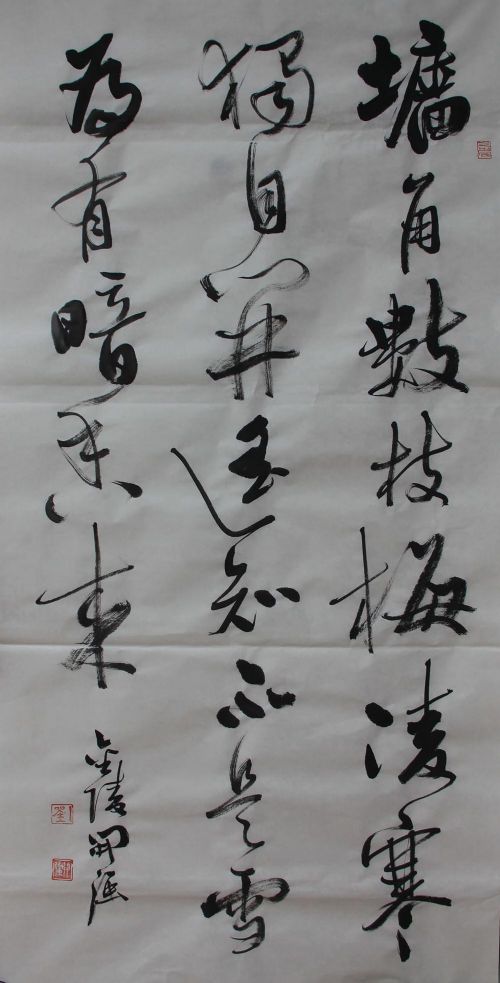 墻角數枝梅凌寒
獨自開遥知不是雪
為有暗香来
金陵開强